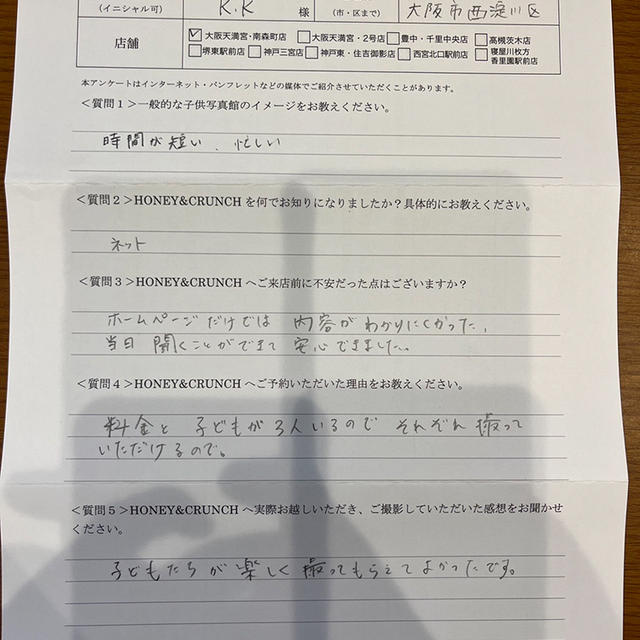 (イニシャル可) K.K 様 (市・区まで) 大阪市西淀川区
店舗
☑大阪天満宮・南森町店 □大阪天満宮・2号店 □豊中・千里中央店 □高槻茨木店
□堺東駅前店 □神戸三宮店 □神戸東・住吉御影店 □西宮北口駅前店 □寝屋川枚方香里園駅前店
本アンケートはインターネット・パンフレットなどの媒体でご紹介させていただくことがあります。
<質問1>一般的な子供写真館のイメージをお教えください。
時間が短い、忙しい
<質問2>HONEY&CRUNCHを何でお知りになりましたか?具体的にお教えください。
ネット
<質問3>HONEY&CRUNCHへご来店前に不安だった点はございますか?
ホームページだけでは 内容がわかりにくかった、
当日 聞くことができて 安心できました。
<質問4>HONEY&CRUNCHへご予約いただいた理由をお教えください。
料金と 子どもが3人いるので それぞれ撮って
いただけるので。
<質問5>HONEY&CRUNCHへ実際お越しいただき、ご撮影していただいた感想をお聞かせ
ください。
子どもたちが 楽しく 撮ってもらえてよかったです。